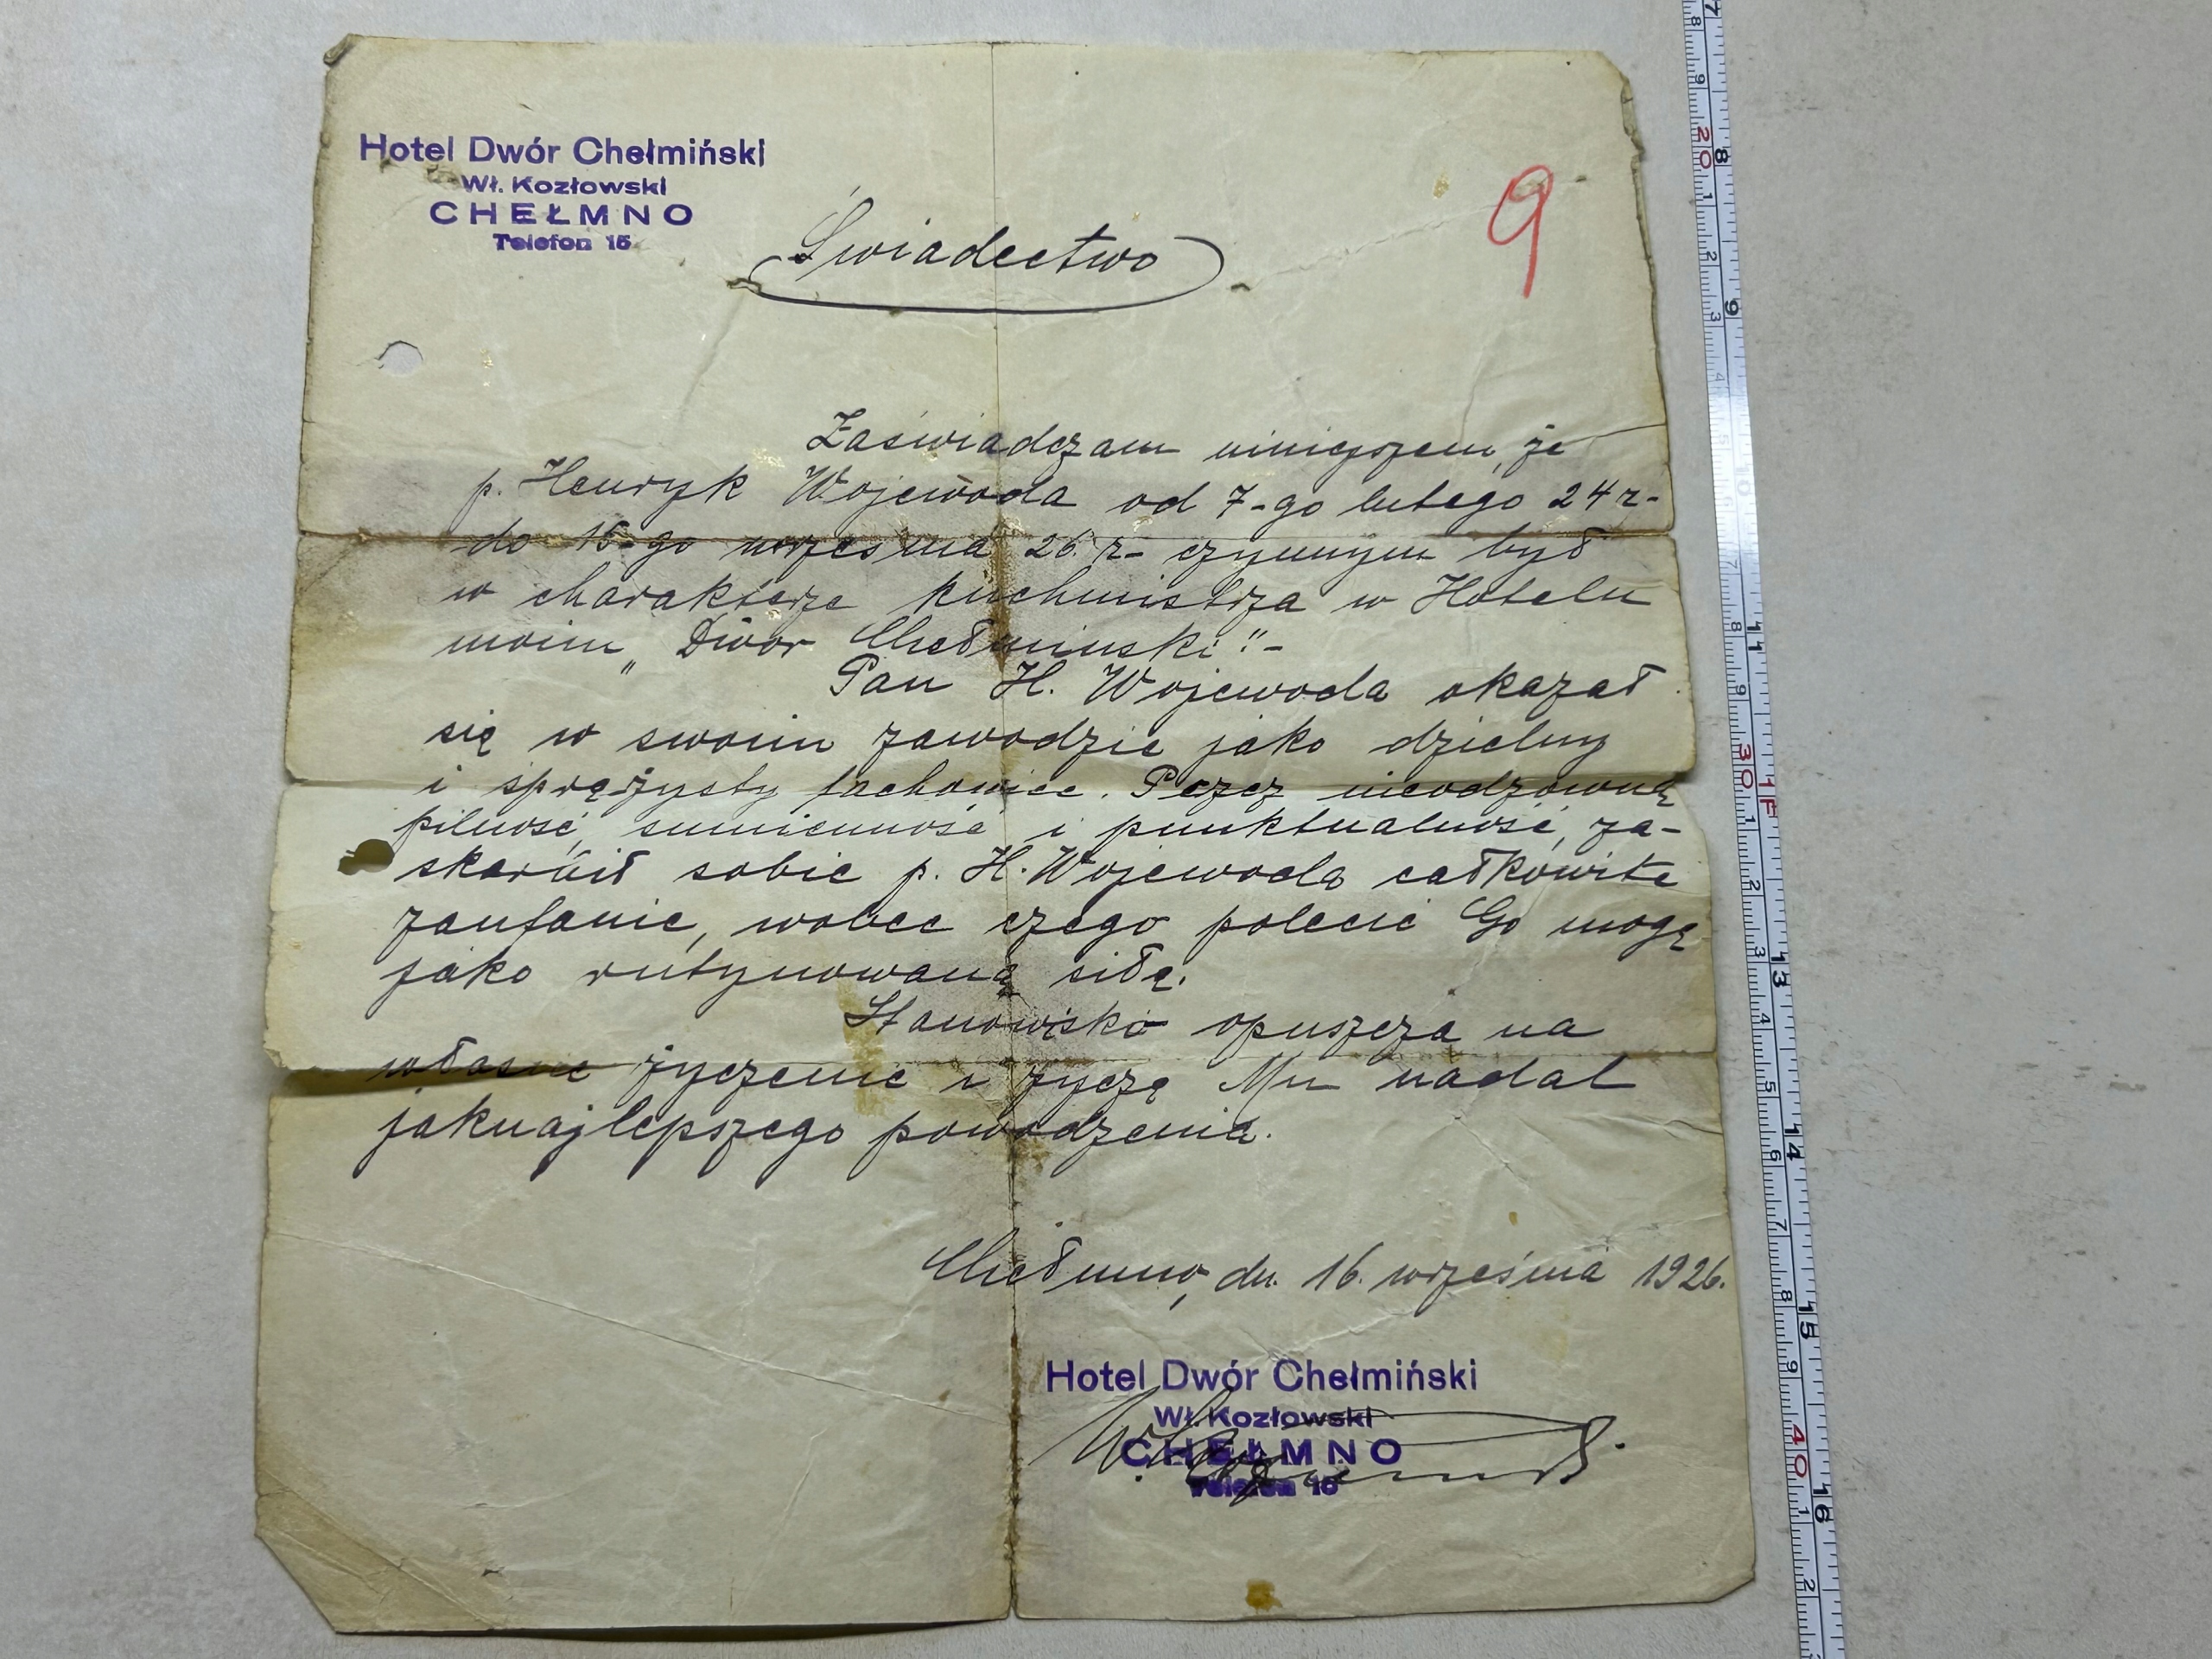 Hotel Dwór Chełmiński
Wł. Kozłowski
CHEŁMNO
Telefon 15
Świadectwo
9
Zaświadczam niniejszem, że
p. Henryk Wojewoda od 7-go lutego 24 r-
do 15-go września 26. r- czynnym był
w charakterze kuchmistrza w Hotelu
moim „Dwór Chełmiński".-
Pan H. Wojewoda okazał
się w swoim zawodzie jako dzielny
i sprężysty fachowiec. Przez nieodzowną
pilność, sumienność i punktualność, za-
skarbił sobie p. H. Wojewoda całkowite
zaufanie, wobec czego polecić Go mogę
jako rutynowaną siłę.
Stanowisko opuszcza na
własne życzenie i życzę Mu nadal
jaknajlepszego powodzenia.
Chełmno, dn. 16. września 1926.
Hotel Dwór Chełmiński
Wł. Kozłowski
CHEŁMNO
Telefon 15